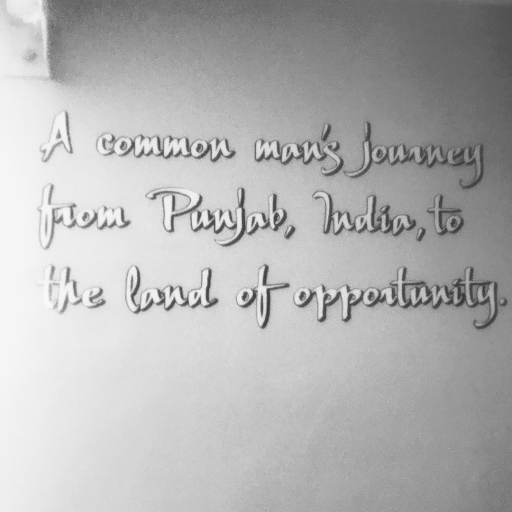 A common man's journey
from Punjab, India, to
the land of opportunity.